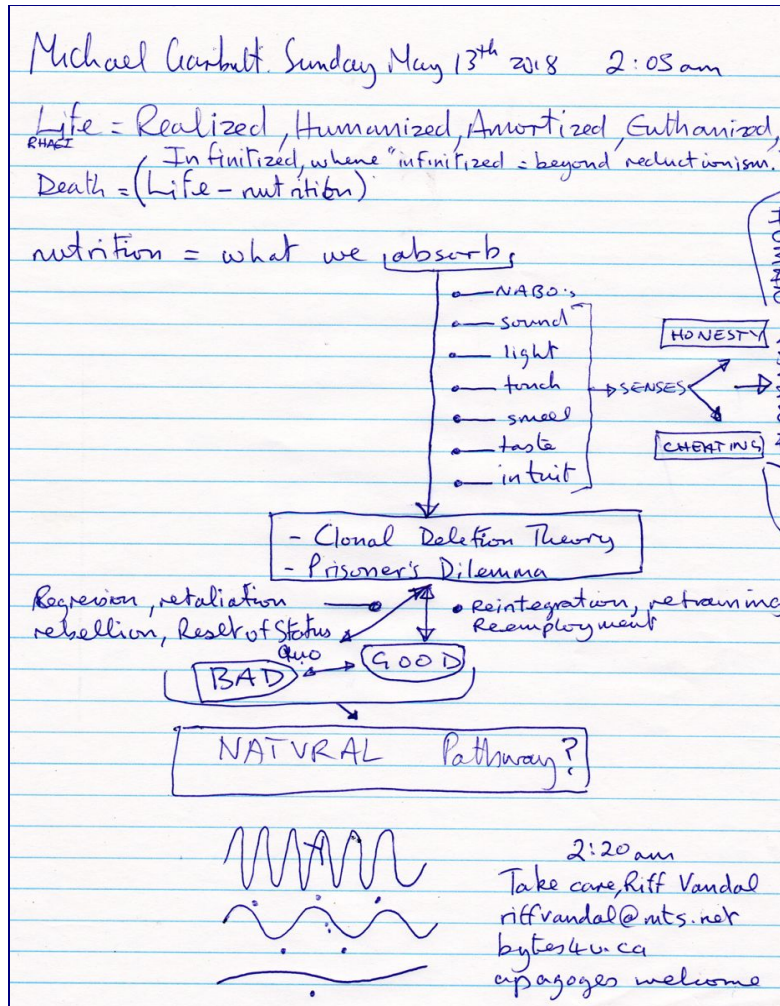 Michael Garbutt. Sunday May 13th 2018 2:05am
Life = Realized, Humanized, Amortized, Euthanized,
RHAEI
Infinitized, where "infinitized = beyond reductionism.
Death = (Life - nutrition)
nutrition = what we absorb
NABO's
sound
light
touch
smell
taste
intuit
SENSES
HONESTY
CHEATING
- Clonal Deletion Theory
- Prisoner's Dilemma
Regression, retaliation
rebellion, Reset of Status
Quo
• Reintegration, retraining
Reemployment
BAD
GOOD
NATURAL Pathway?
2:20am
Take care, Riff Vandal
riffvandal@mts.net
bytes4u.ca
apagoges welcome